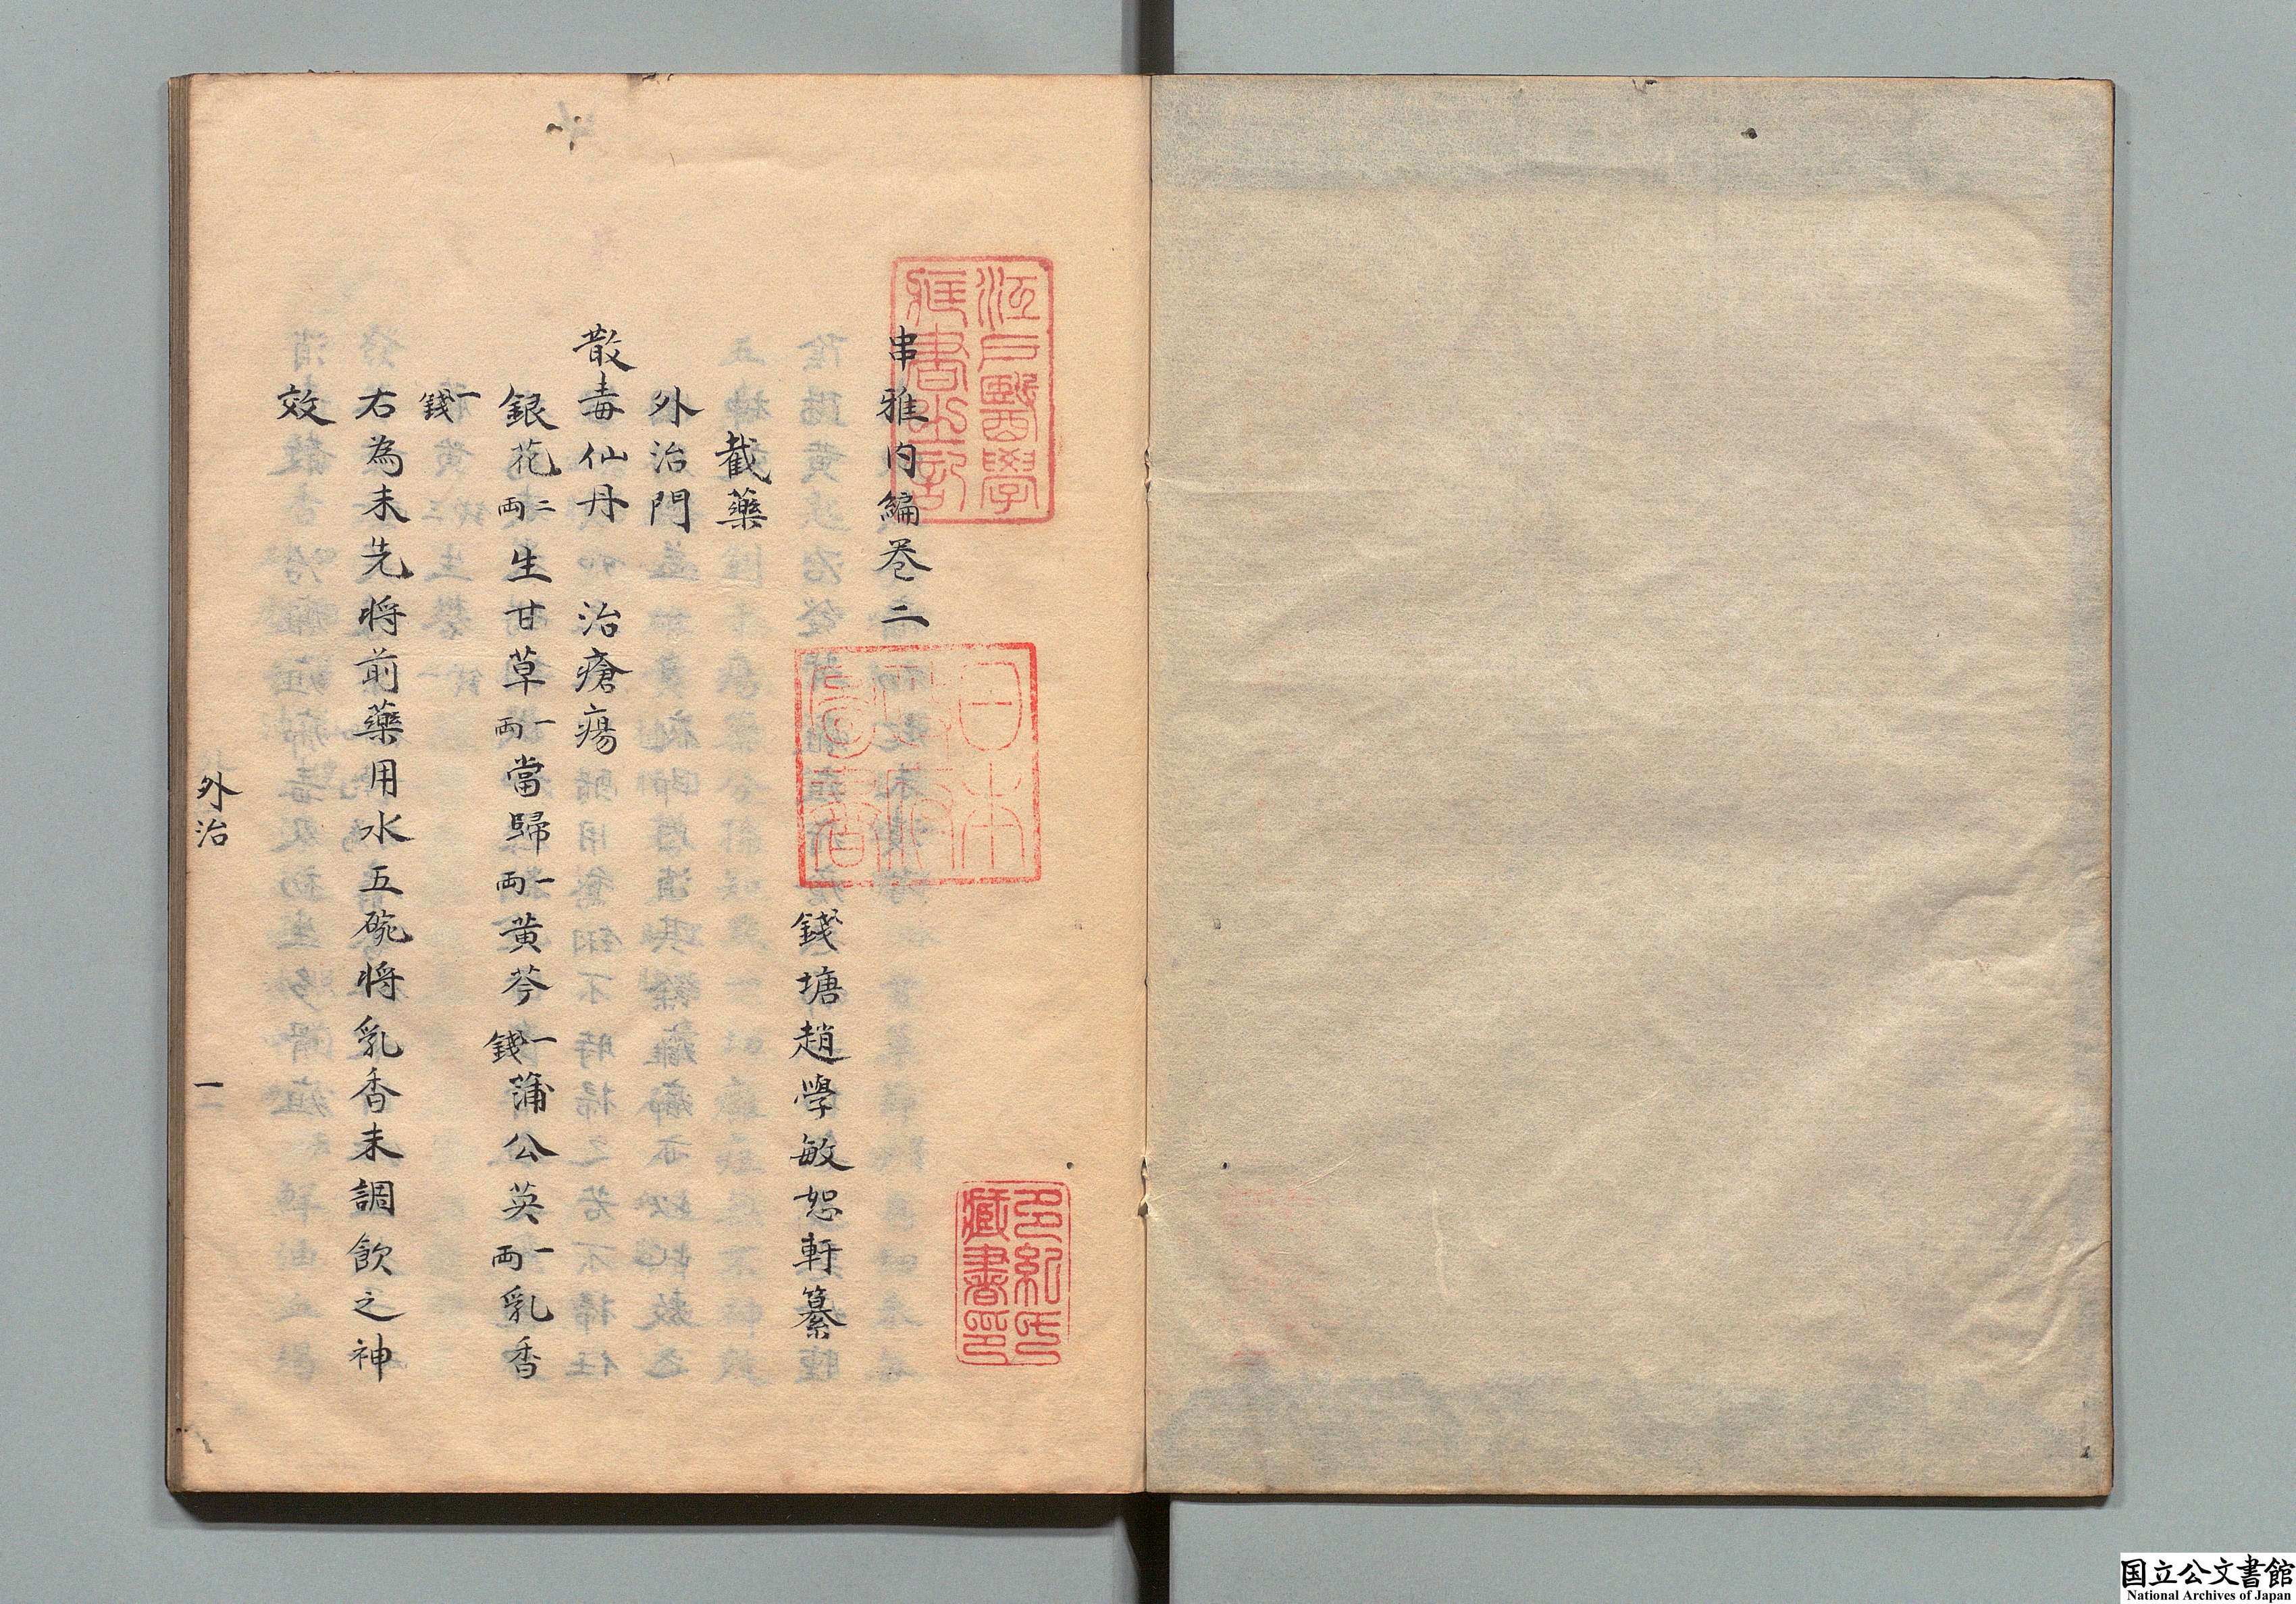 串雅内編卷二
錢塘趙學敏恕軒纂
截藥
外治門
散毒仙丹 治瘡瘍
銀花二両生甘草一両當歸一両黄芩一錢蒲公英一両乳香
一錢
右為末先将前藥用水五碗将乳香末調飲之神
效
外治 一
江戸醫學
藏書之記
日本
政府
圖書
多紀氏
藏書印
国立公文書館
National Archives of Japan